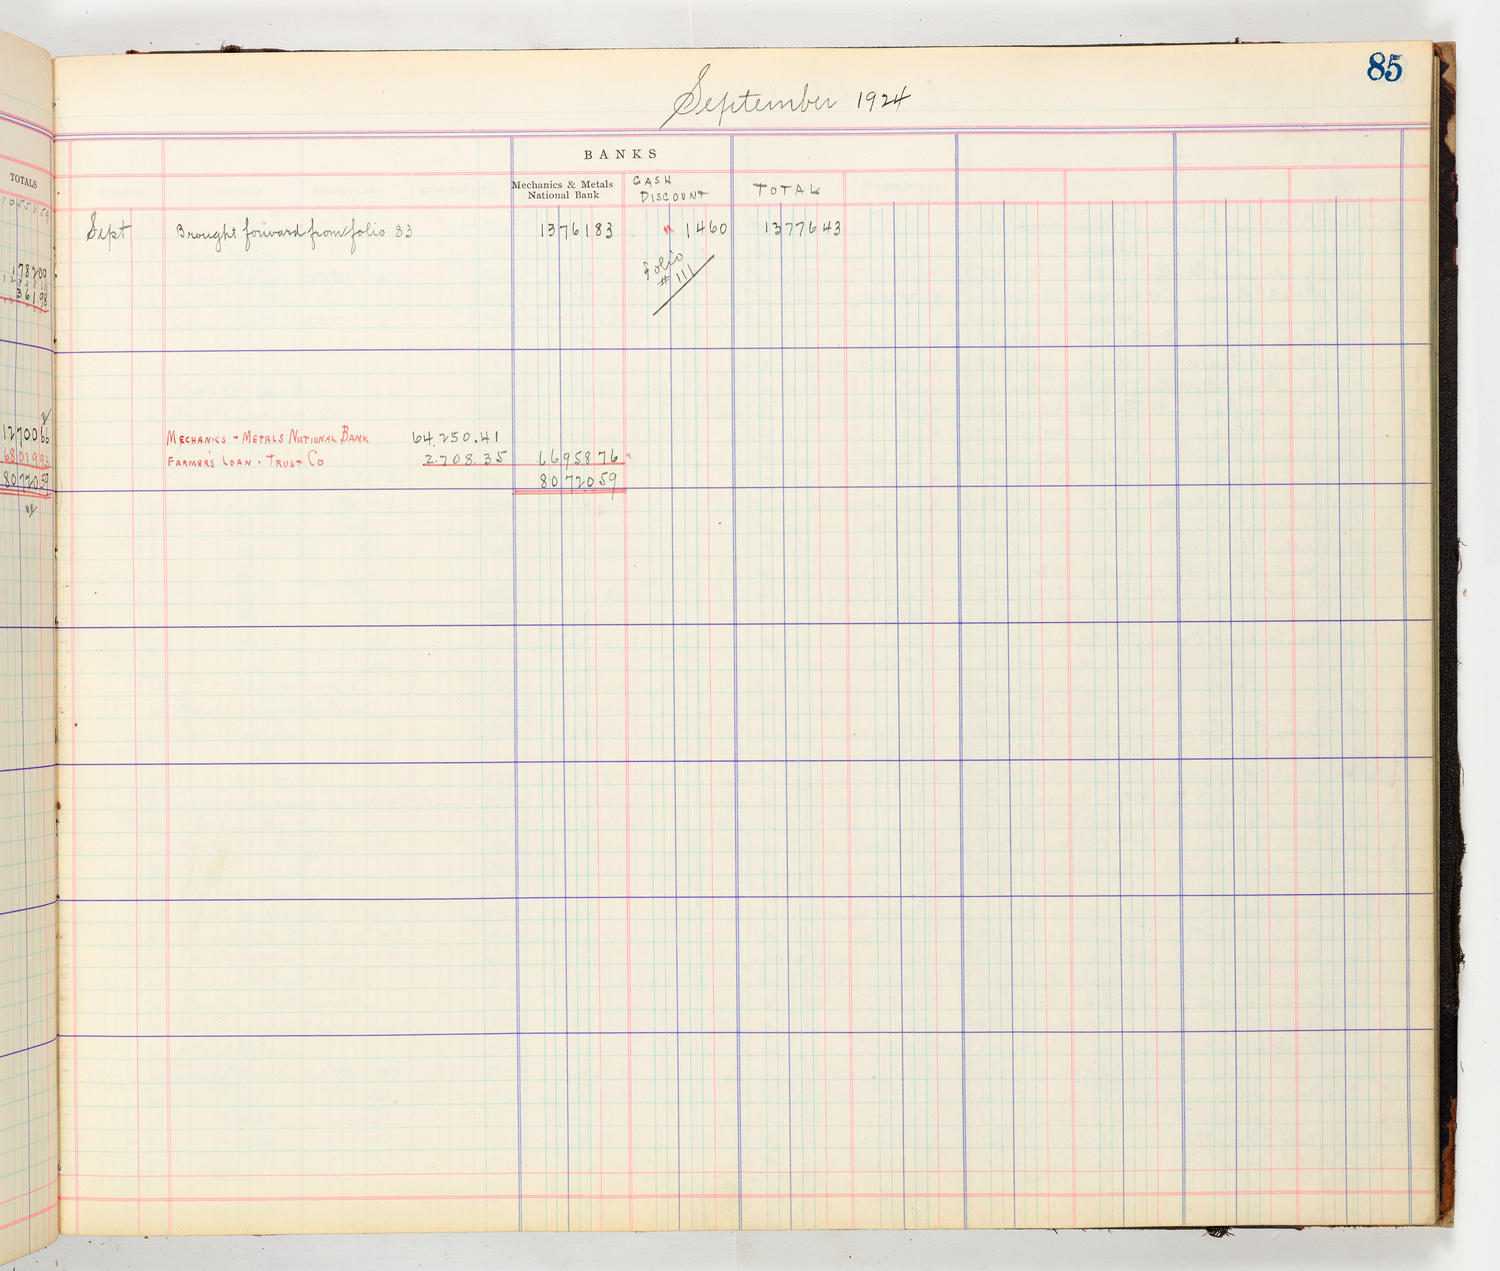 85
September 1924
TOTALS
BANKS
Mechanics & Metals National Bank
CASH DISCOUNT
TOTAL
Sept Brought forward from folio 83 1376183 1460 1377643
folio # 111
178200
36198
1270066
MECHANICS + METALS NATIONAL BANK 64,250.41
6801993
FARMER'S LOAN + TRUST CO 2.708.35 6695876
8072059
8072059